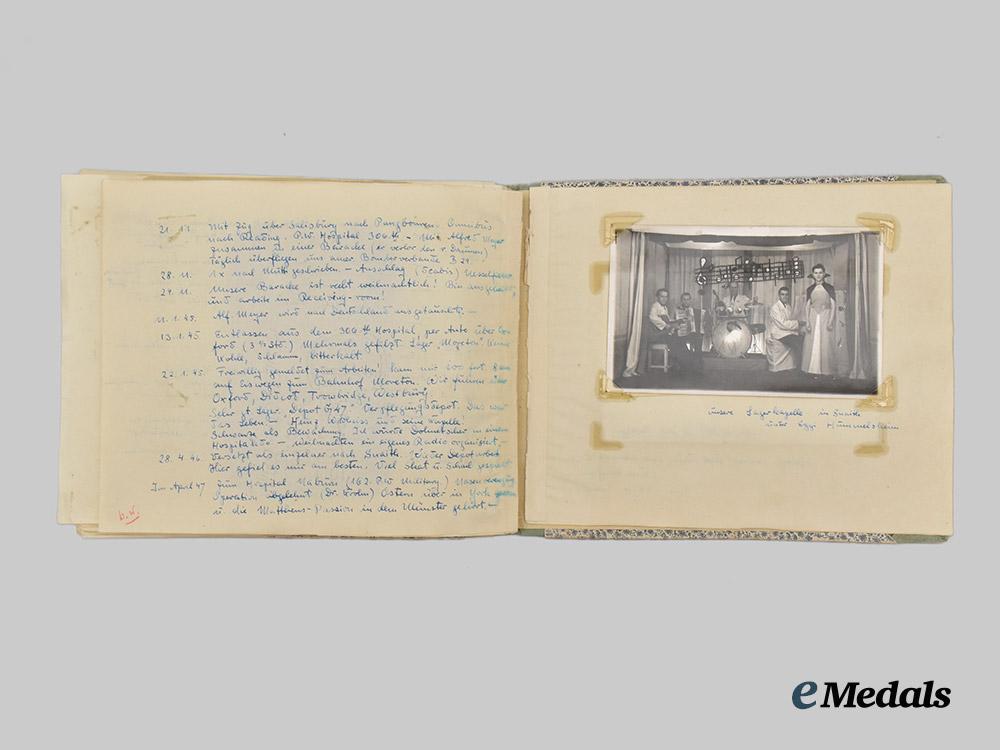 21. 11. Mit Zug über Salisbury nach Pangbourn. Omnibus
nach Reading. P.W. Hospital 306th – Mit Alfred Meyer
zusammen in einer Baracke (er verlor den r. Daumen)
Täglich überfliegen uns amer. Bomberverbände
28. 11. 1x nach geschrieben. – Ausschlag (Scabis)
29. 11. Unsere Baracke ist recht weihnachtlich! Bin
und arbeite im Receiving-room!
11. 1. 45. Alf. Meyer wird nach Deutschland ausgetauscht. –
13. 1. 45 Entlassen aus dem 306th Hospital, per Auto über
ford (3 ½ Std.) Mehrmals gefilzt. Lager „Moreton"
Kohle, Schlamm, bitterkalt
22. 1. 45. Freiwillig gemeldet zum Arbeiten! kam mit
auf Eiswegen zum Bahnhof Moreton. Wir fuhren über
Oxford, Didcot, Trowbridge, Westbury
Sehr gt Lager. Depot G 47. Verpflegungsdepot. Das war
das Leben – Heinz und seine Kapelle
Schwarze als Bewachung. Ich wurde Dolmetscher in einem
– Weihnachten ein eigenes Radio organisiert. –
28. 4. 46 Versetzt als einzelner nach Snaith. Wieder Depotarbeit
Hier gefiel es mir am besten. Viel Skat u. Schach gespielt
Im April 47 zum Hospital Naburn (162. P.W. Military)
Operation abgelehnt (Dr. Krohn) Ostern über in York
u. die Matthäus-Passion in dem Münster gehört. –
b.w.
unsere Lagerkapelle in Snaith
unter Hümmelsheim
eMedals